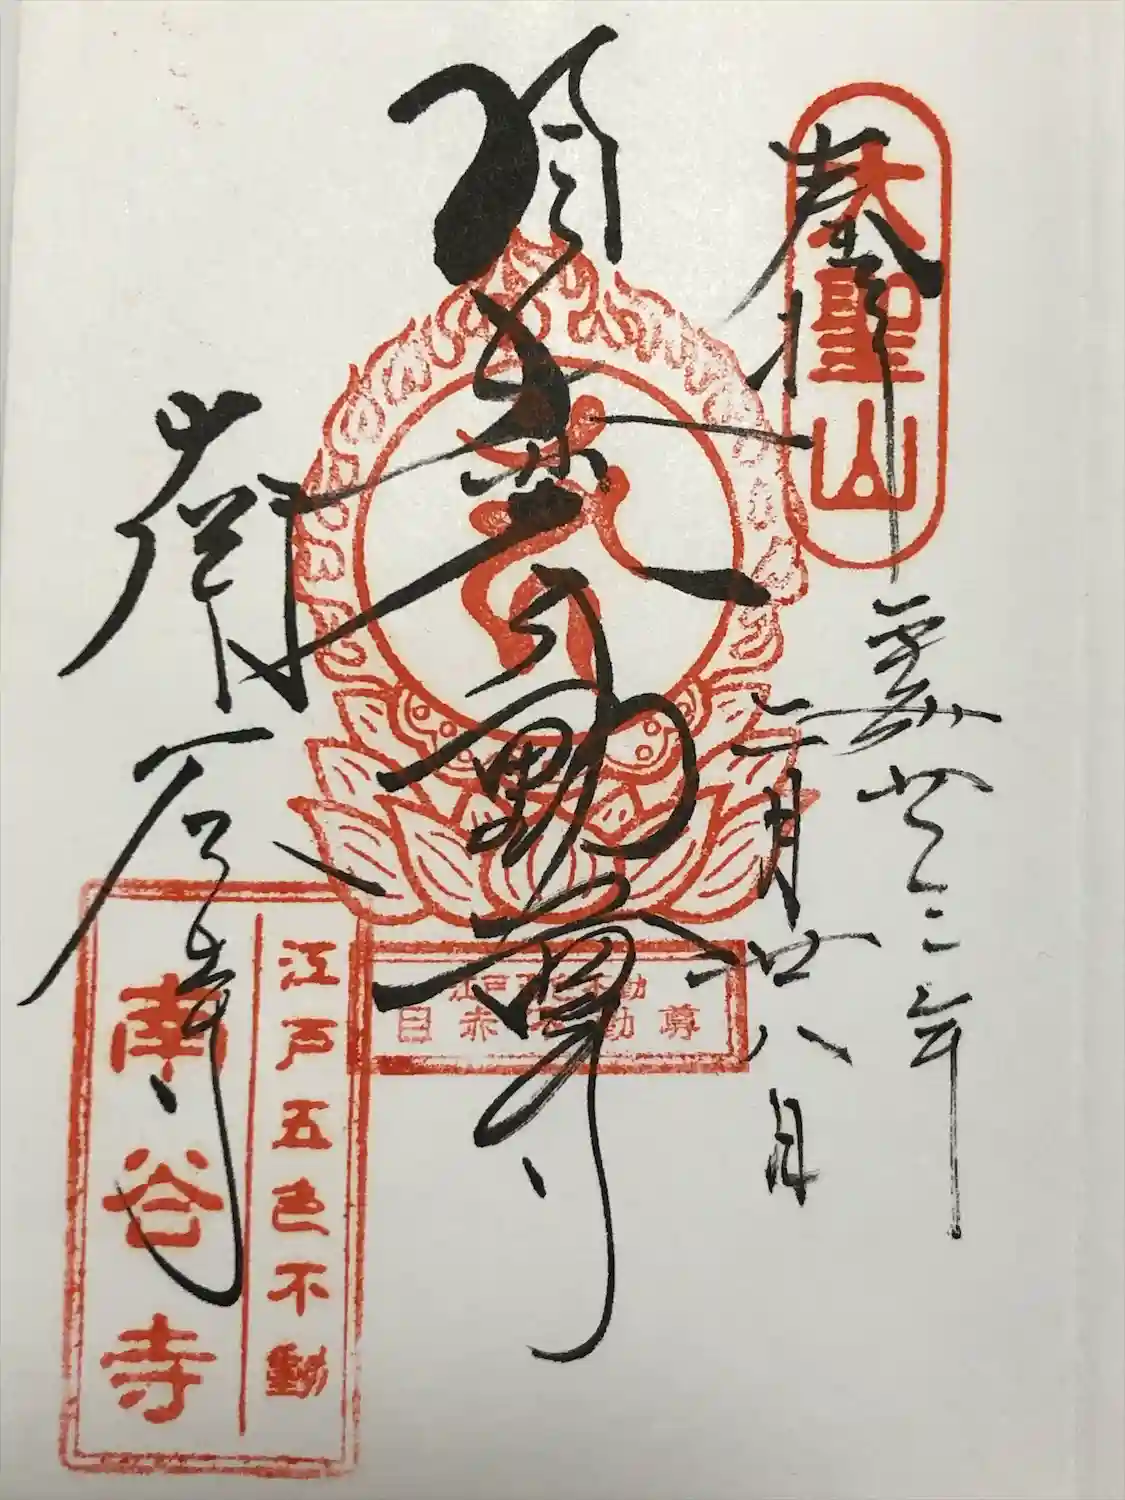 奉拝
大聖山
平成廿三年
六月廿八日
目赤不動尊
江戸五色不動
目赤不動尊
江戸五色不動
南谷寺
南谷寺